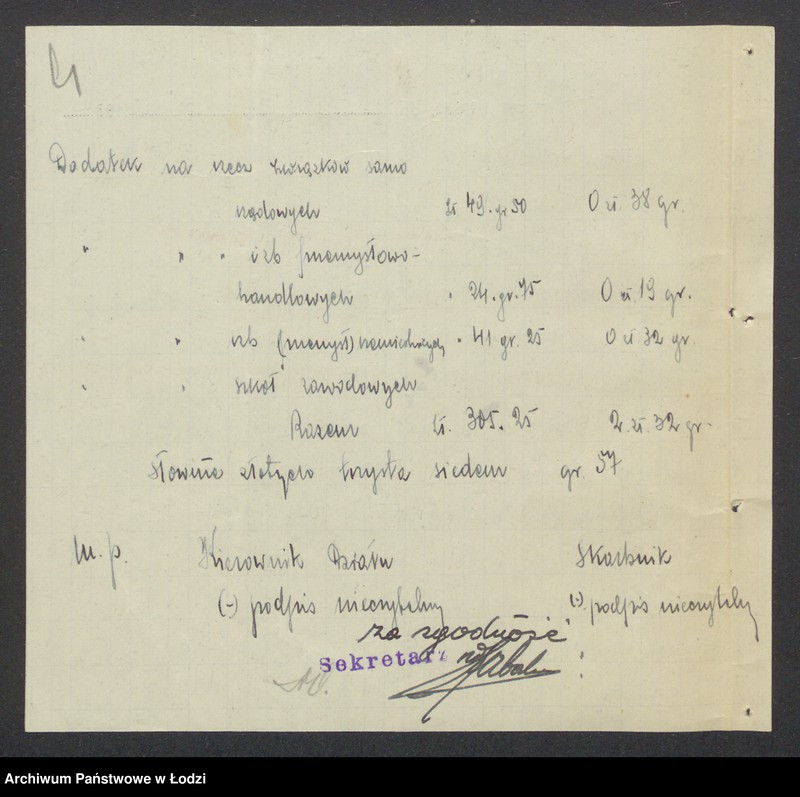 Dodatek na rzecz związków samo
rządowych zł 49. gr 50 0 zł. 38 gr.
" " " izb przemysłowo-
handlowych " 24. gr. 75 0 zł. 19 gr.
" " izb (przemysł) rzemieślniczych " 41 gr. 25 0 zł 32 gr.
" " szkół zawodowych
Razem zł. 305. 25 2. zł. 32 gr.
słownie złotych trzysta siedem gr. 57
m. p. Kierownik Działu Skarbnik
(-) podpis nieczytelny (-) podpis nieczytelny
za zgodność
Sekretarz
Archiwum Państwowe w Łodzi